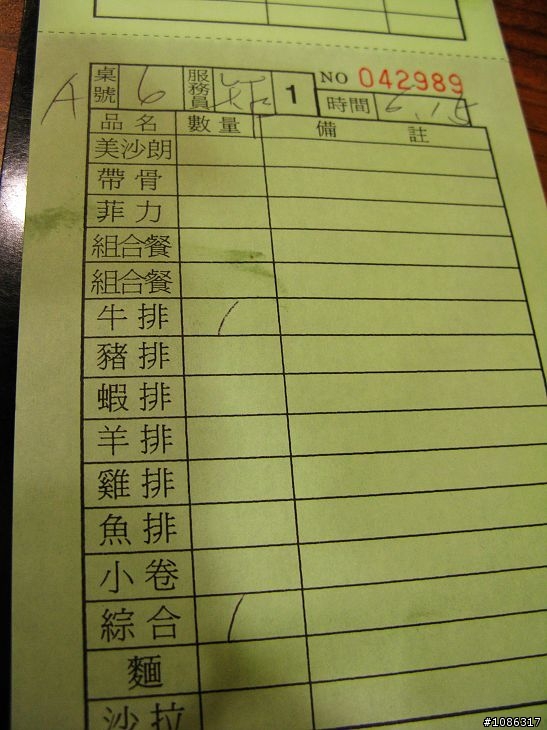 A 桌號 6 服務員 1 NO 042989
時間 6.15
品名 數量 備註
美沙朗
帶骨
菲力
組合餐
組合餐
牛排 1
豬排
蝦排
羊排
雞排
魚排
小卷
綜合 1
麵
沙拉
#1086317